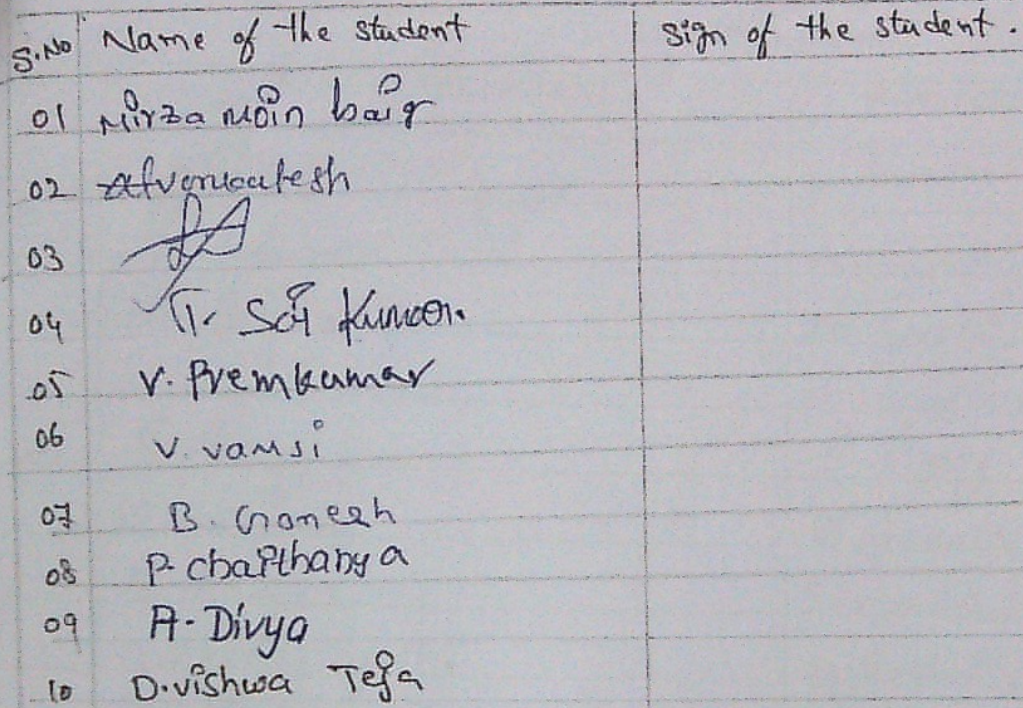 S.No Name of the student sign of the student.
01 Mirza moin baig
02 venkatesh
03
04 T. Sai Kumar.
05 V. Premkumar
06 V. vamsi
07 B. Ganesh
08 P. chaithanya
09 A. Divya
10 D. vishwa Teja